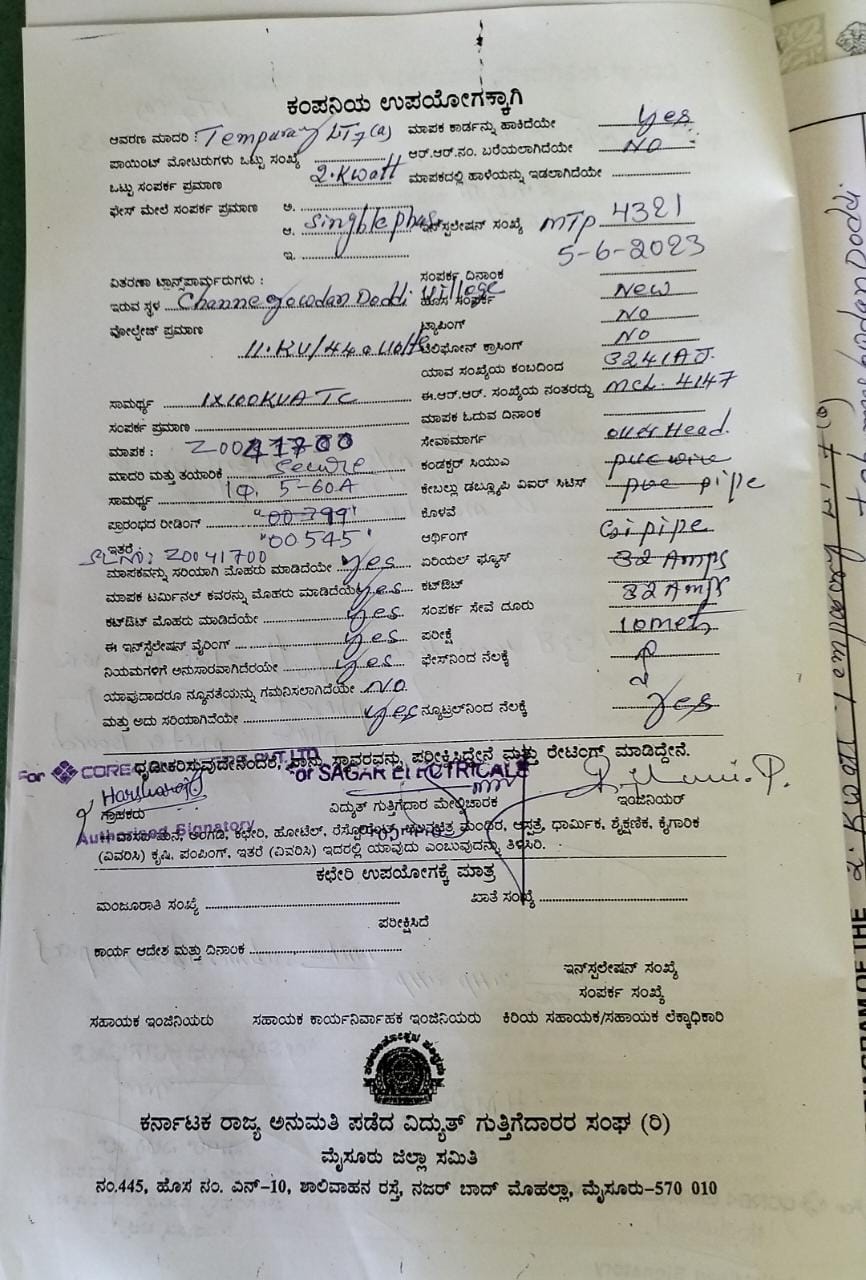 ಕಂಪನಿಯ ಉಪಯೋಗಕ್ಕಾಗಿ
ಆವರಣ ಮಾದರಿ : Tempuray LT7(a) ಮಾಪಕ ಕಾರ್ಡನ್ನು ಹಾಕಿದೆಯೇ Yes
ಪಾಯಿಂಟ್ ಮೋಟರುಗಳು ಒಟ್ಟು ಸಂಖ್ಯೆ ಆರ್.ಆರ್.ನಂ. ಬರೆಯಲಾಗಿದೆಯೇ NO
ಒಟ್ಟು ಸಂಪರ್ಕ ಪ್ರಮಾಣ 2.Kwatt ಮಾಪಕದಲ್ಲಿ ಹಾಳೆಯನ್ನು ಇಡಲಾಗಿದೆಯೇ
ಫೇಸ್ ಮೇಲೆ ಸಂಪರ್ಕ ಪ್ರಮಾಣ ಅ.
ಆ. Singhlephas ಇನ್‌ಸ್ಪಲೇಷನ್ ಸಂಖ್ಯೆ MTP 4321
ಇ. 5-6-2023
ವಿತರಣಾ ಟ್ರಾನ್ಸ್‌ಪಾರ್ಮರುಗಳು : ಸಂಪರ್ಕ ದಿನಾಂಕ
ಇರುವ ಸ್ಥಳ Channegowdan Doddi Village ಹೊಸ ಸಂಪರ್ಕ New
ವೋಲ್ಟೇಜ್ ಪ್ರಮಾಣ ಟ್ಯಾಪಿಂಗ್ NO
11.KV/440 Volts ಟೆಲಿಫೋನ್ ಕ್ರಾಸಿಂಗ್ NO
ಯಾವ ಸಂಖ್ಯೆಯ ಕಂಬದಿಂದ
ಸಾಮರ್ಥ್ಯ 1X100KVA TC ಈ.ಆರ್.ಆರ್. ಸಂಖ್ಯೆಯ ನಂತರದ್ದು MCL. 4147
ಸಂಪರ್ಕ ಪ್ರಮಾಣ ಮಾಪಕ ಓದುವ ದಿನಾಂಕ
ಮಾಪಕ : Z0041700 ಸೇವಾಮಾರ್ಗ over Head.
ಮಾದರಿ ಮತ್ತು ತಯಾರಿಕೆ Secure ಕಂಡಕ್ಟರ್ ಸಿಯುಎ pvc wire
ಸಾಮರ್ಥ್ಯ 1Φ. 5-60A ಕೇಬಲ್ಲು ಡಬ್ಲ್ಯೂಪಿ ವಿಐರ್ ಸಿಟಿಸ್ pvc pipe
ಪ್ರಾರಂಭದ ರೀಡಿಂಗ್ "00399" ಕೊಳವೆ
"00545" ಆರ್ಥಿಂಗ್ Gi pipe
ಇತರೆ
SL NO: Z0041700
ಮಾಪಕವನ್ನು ಸರಿಯಾಗಿ ಮೊಹರು ಮಾಡಿದೆಯೇ Yes ಏರಿಯಲ್ ಫ್ಯೂಸ್ 32 Amps
ಮಾಪಕ ಟರ್ಮಿನಲ್ ಕವರನ್ನು ಮೊಹರು ಮಾಡಿದೆಯೇ Yes ಕಟ್‌ಔಟ್ 32 Amps
ಕಟ್‌ಔಟ್ ಮೊಹರು ಮಾಡಿದೆಯೇ Yes ಸಂಪರ್ಕ ಸೇವೆ ದೂರು 10 met
ಈ ಇನ್‌ಸ್ಪೆಲೇಷನ್ ವೈರಿಂಗ್ Yes ಪರೀಕ್ಷೆ
ನಿಯಮಗಳಿಗೆ ಅನುಸಾರವಾಗಿದೆರೆಯೇ Yes ಫೇಸ್‌ನಿಂದ ನೆಲಕ್ಕೆ
ಯಾವುದಾದರೂ ನ್ಯೂನತೆಯನ್ನು ಗಮನಿಸಲಾಗಿದೆಯೇ NO
ಮತ್ತು ಅದು ಸರಿಯಾಗಿದೆಯೇ Yes ನ್ಯೂಟ್ರಲ್‌ನಿಂದ ನೆಲಕ್ಕೆ Yes
ದೃಢೀಕರಿಸುವುದೇನೆಂದರೆ, ನಾನು ಸ್ಥಾವರವನ್ನು ಪರೀಕ್ಷಿಸಿದ್ದೇನೆ ಮತ್ತು ರೇಟಿಂಗ್ ಮಾಡಿದ್ದೇನೆ.
For CORE PVT LTD
For SAGAR ELECTRICALS
ಗ್ರಾಹಕರು ವಿದ್ಯುತ್ ಗುತ್ತಿಗೆದಾರ ಮೇಲ್ವಿಚಾರಕ ಇಂಜಿನಿಯರ್
Authorised Signatory
ಮನೆ, ಅಂಗಡಿ, ಕಛೇರಿ, ಹೋಟೆಲ್, ಆಸ್ಪತ್ರೆ, ಧಾರ್ಮಿಕ, ಶೈಕ್ಷಣಿಕ, ಕೈಗಾರಿಕ
(ವಿವರಿಸಿ) ಕೃಷಿ, ಪಂಪಿಂಗ್, ಇತರೆ (ವಿವರಿಸಿ) ಇದರಲ್ಲಿ ಯಾವುದು ಎಂಬುವುದನ್ನು ತಿಳಿಸಿರಿ.
ಕಛೇರಿ ಉಪಯೋಗಕ್ಕೆ ಮಾತ್ರ
ಮಂಜೂರಾತಿ ಸಂಖ್ಯೆ ಖಾತೆ ಸಂಖ್ಯೆ
ಪರೀಕ್ಷಿಸಿದೆ
ಕಾರ್ಯ ಆದೇಶ ಮತ್ತು ದಿನಾಂಕ
ಇನ್‌ಸ್ಪಲೇಷನ್ ಸಂಖ್ಯೆ
ಸಂಪರ್ಕ ಸಂಖ್ಯೆ
ಸಹಾಯಕ ಇಂಜಿನಿಯರು ಸಹಾಯಕ ಕಾರ್ಯನಿರ್ವಾಹಕ ಇಂಜಿನಿಯರು ಕಿರಿಯ ಸಹಾಯಕ/ಸಹಾಯಕ ಲೆಕ್ಕಾಧಿಕಾರಿ
ಕರ್ನಾಟಕ ರಾಜ್ಯ ಅನುಮತಿ ಪಡೆದ ವಿದ್ಯುತ್ ಗುತ್ತಿಗೆದಾರರ ಸಂಘ (ರಿ)
ಮೈಸೂರು ಜಿಲ್ಲಾ ಸಮಿತಿ
ನಂ.445, ಹೊಸ ನಂ. ಎನ್-10, ಶಾಲಿವಾಹನ ರಸ್ತೆ, ನಜರ್ ಬಾದ್ ಮೊಹಲ್ಲಾ, ಮೈಸೂರು-570 010